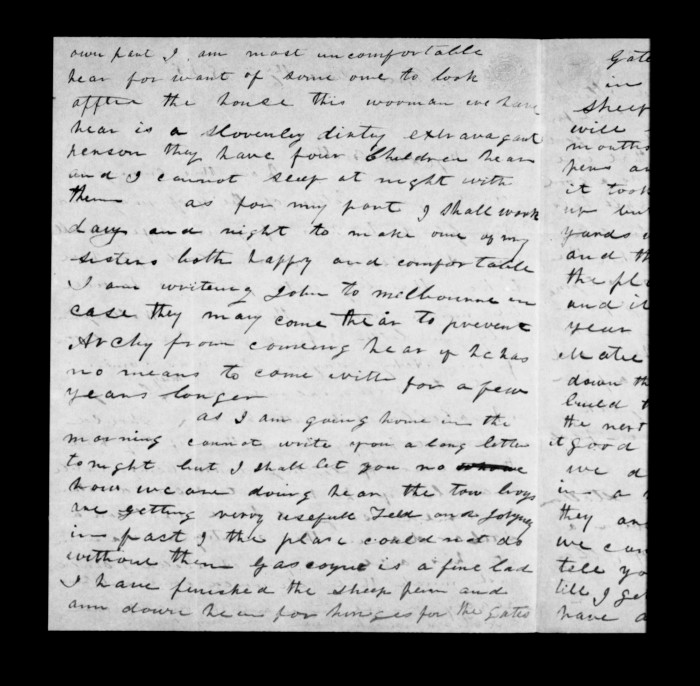 own part I am most uncomfortable
hear for want of some one to look
affter the house this wooman we have
hear is a slovenley dirtey extravagant
person they have four Children hear
and I cannot sleep at night with
them as for my part I shall work
days and night to make one of my
sisters both happy and comfortable
I am writeing John to milbourne in
case they may come thear to prevent
Archy from comeing hear if he has
no means to come with for a few
years longer
as I am going home in the
morning cannot write you a long letter
tonight but I shall let you no
how we are doing hear the tow boys
are getting verry usefull Tell and
in fact I the place could not do
without them Gascoyne is a fine lad
I have finished the sheep pen and
am down hear for hinges for the gates
Gate
in
sheep
will
months
pens an
it took
up but
yards
and th
the pl
and it
year
down th
build t
the next
it good
we d
in a
they an
we can
tell yo
till I get
have a